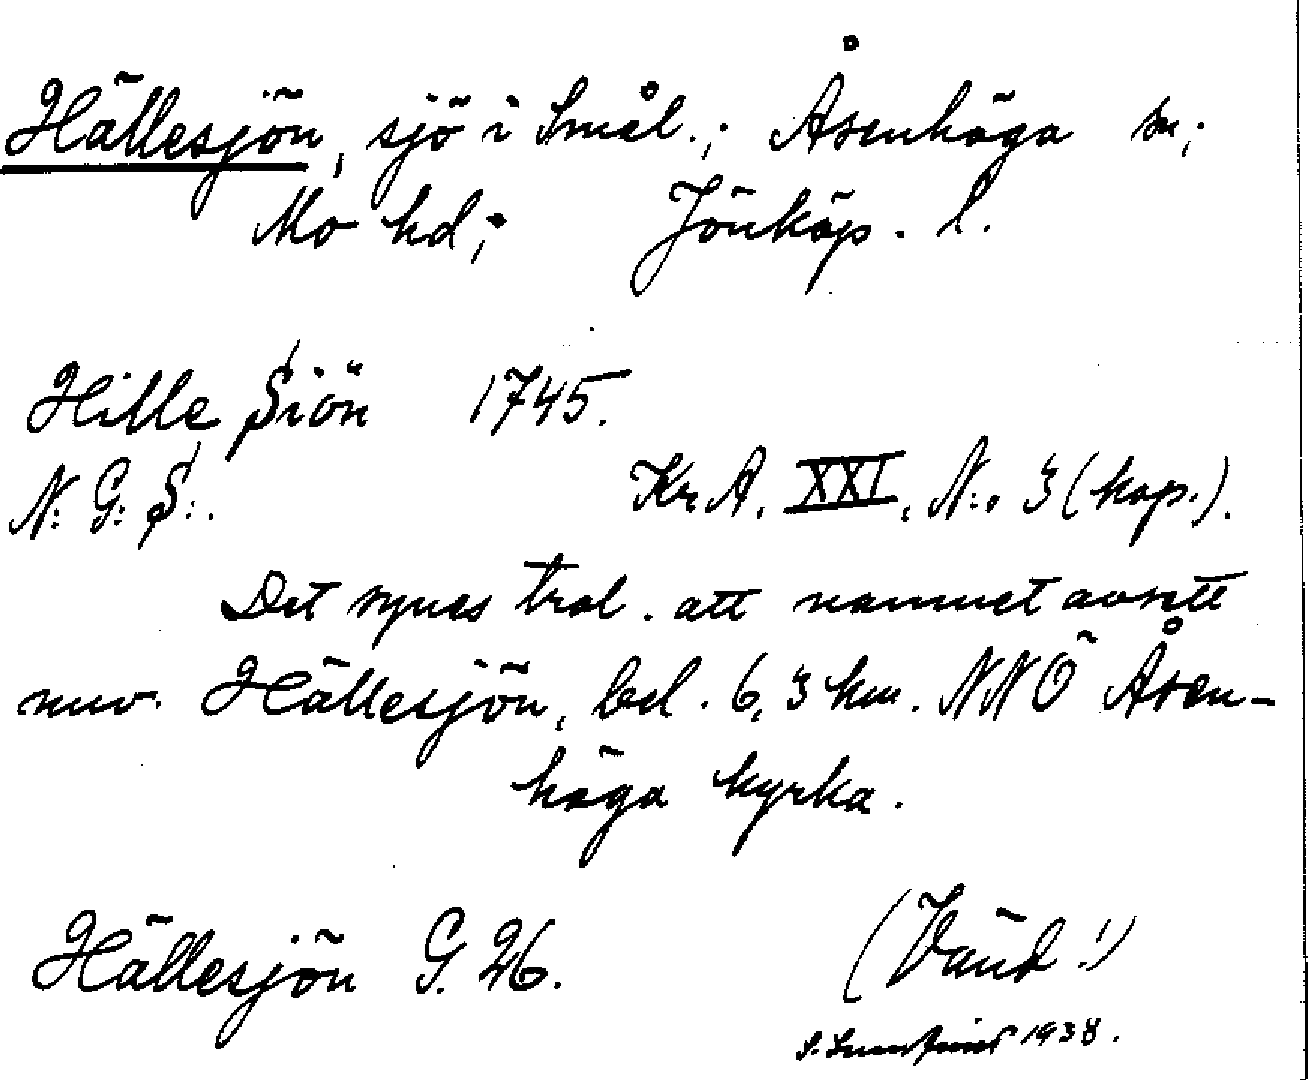 Hällesjön, sjö i Smål.; Åsenhöga sn;
Mo hd; Jönköp. l.
Hille Siön 1745.
N: G: S:.
Kr. A. XXI. N:o 3 (kop.).
Det synes trol. att namnet avsett
nuv. Hällesjön, bel. 6,3 km. NNÖ Åsen-
höga kyrka.
Hällesjön G. 26.
(Vänd!)
1938.